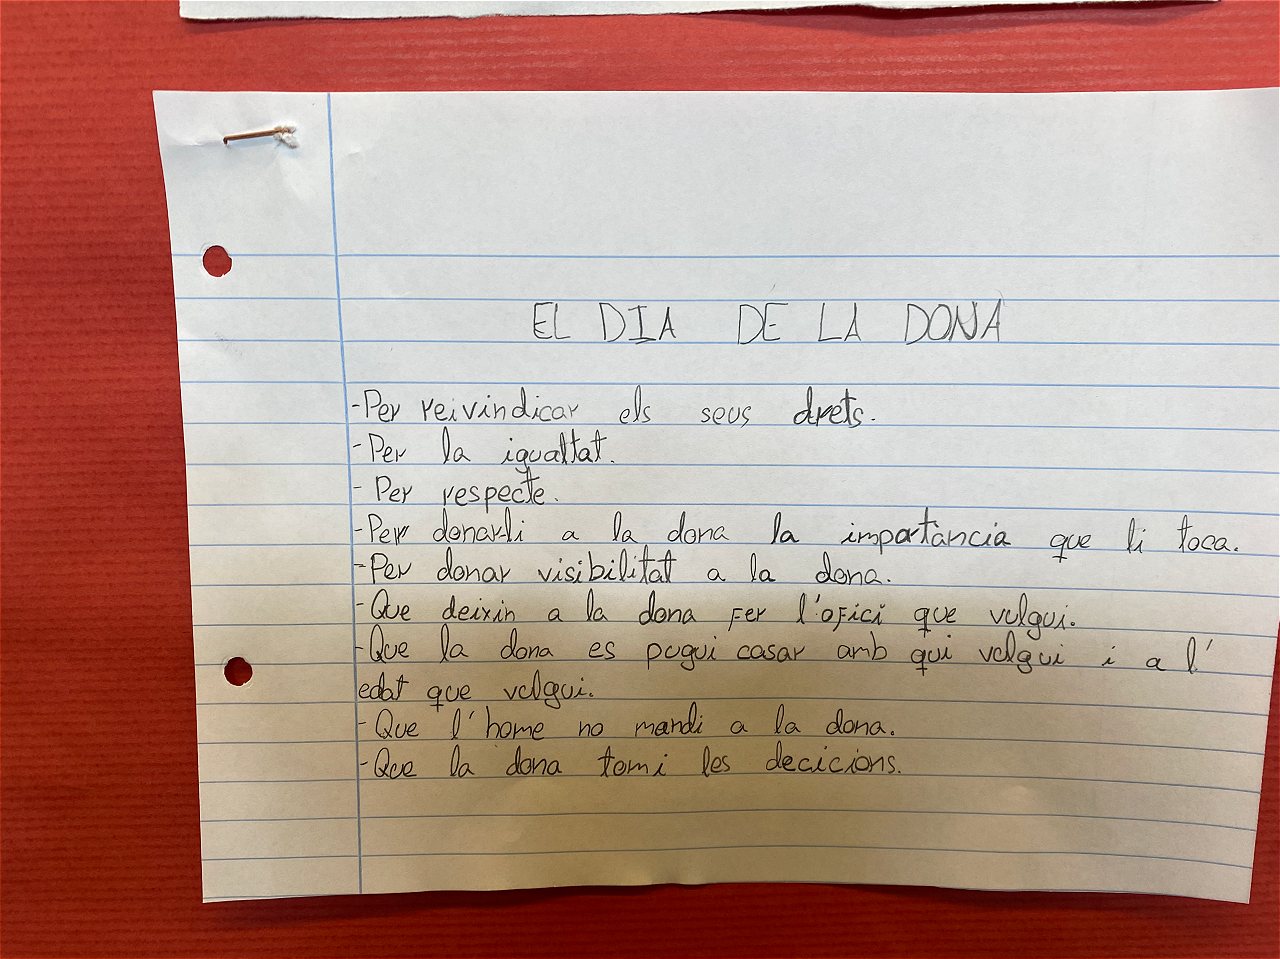 EL DIA DE LA DONA
-Per reivindicar els seus drets.
-Per la igualtat.
-Per respecte.
-Per donar-li a la dona la importància que li toca.
-Per donar visibilitat a la dona.
-Que deixin a la dona fer l'ofici que vulgui.
-Que la dona es pugui casar amb qui volgui i a l'
edat que volgui.
-Que l'home no mandi a la dona.
-Que la dona tomi les decicions.